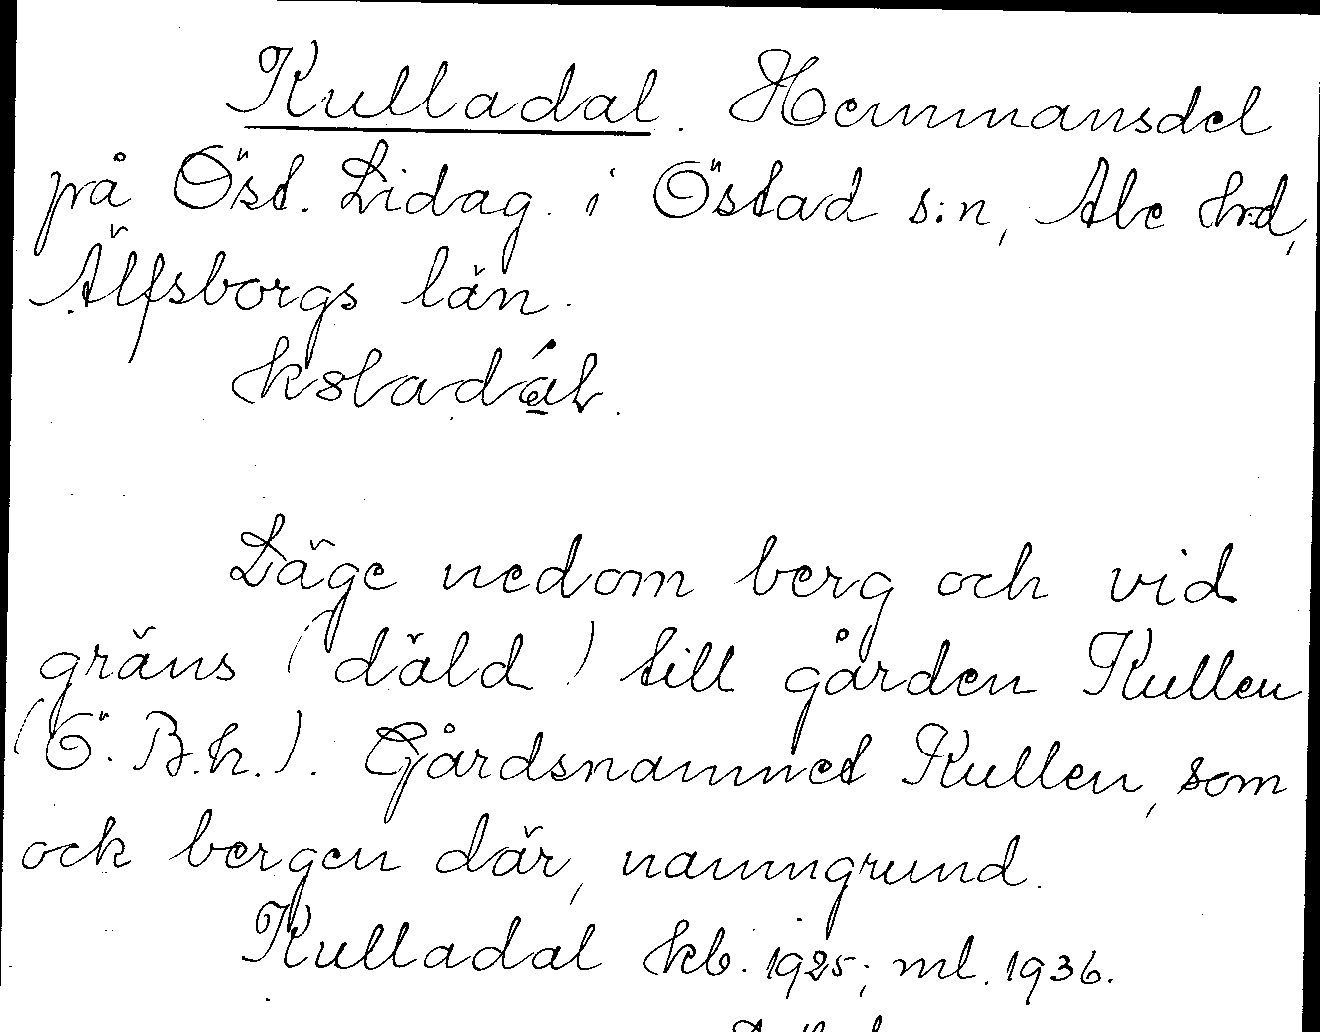 Kulladal. Hemmansdel
på Öst. Lidag. i Östad s:n, Ale hrd,
Älfsborgs län.
Läge nedom berg och vid
gräns (däld) till gården Kullen
(Ö. B.h.). Gårdsnamnet Kullen, som
ock bergen där, namngrund.
Kulladal kb. 1925; ml. 1936.